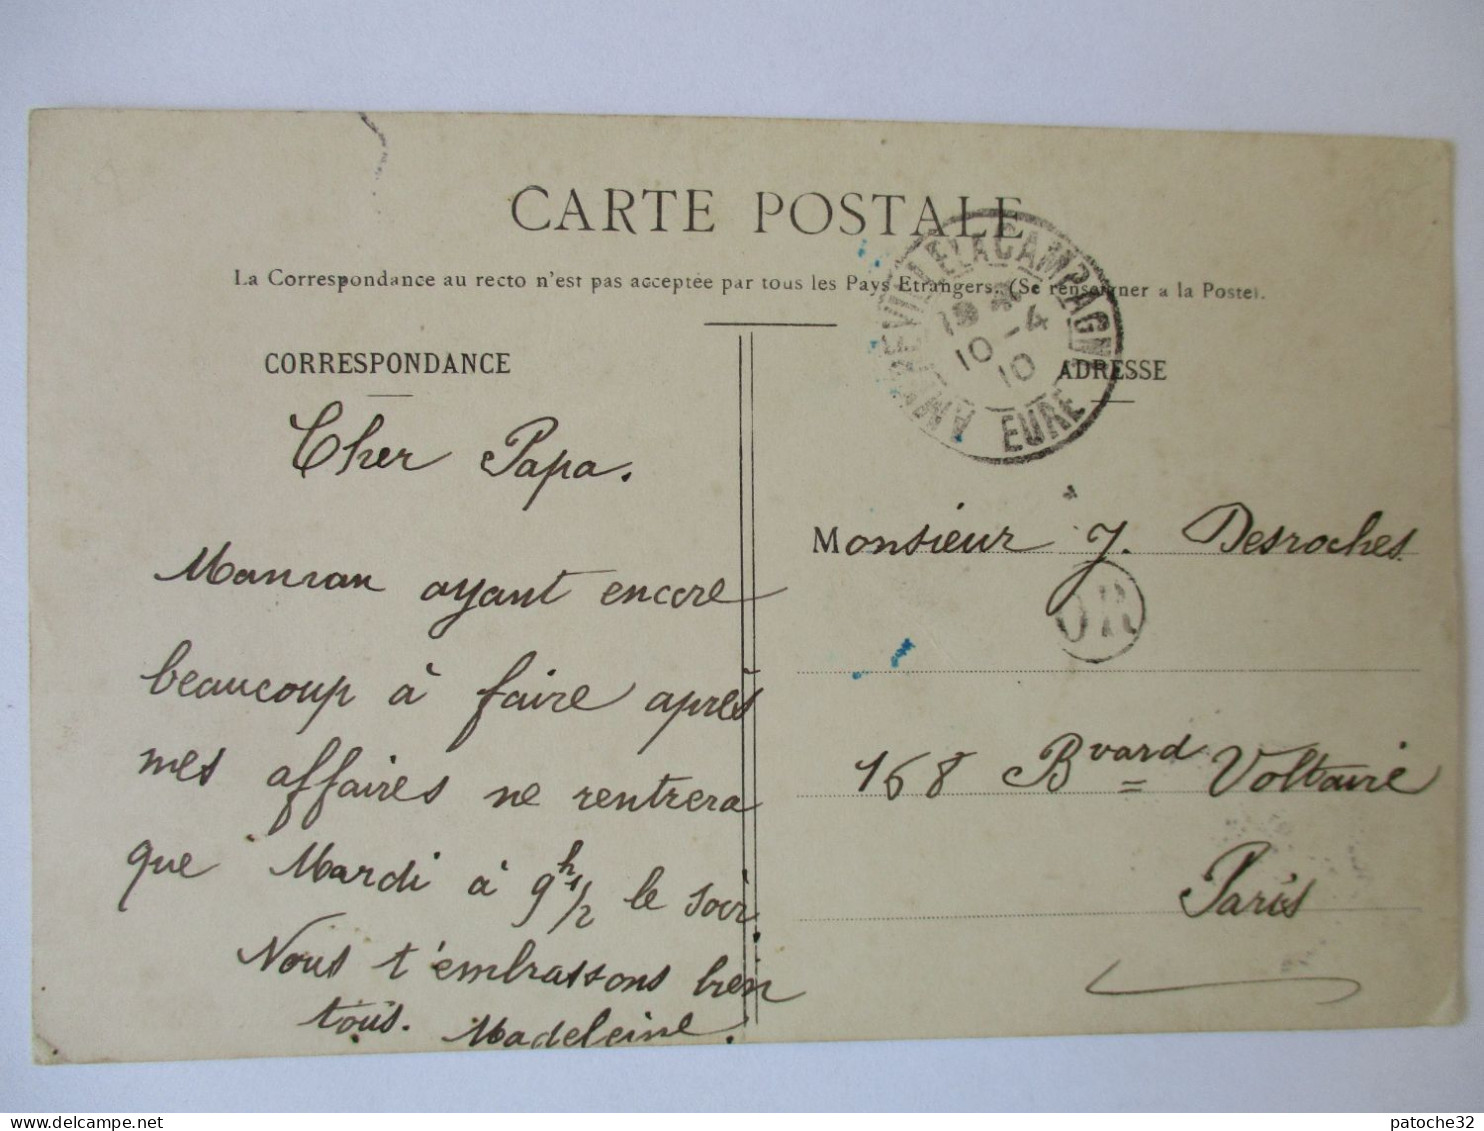 CARTE POSTALE
La Correspondance au recto n'est pas acceptée par tous les Pays Etrangers. (Se renseigner a la Poste).
CORRESPONDANCE
Cher Papa.
Maman ayant encore
beaucoup à faire après
mes affaires ne rentrera
que Mardi à 9h 1/2 le soir.
Nous t'embrassons bien
tous. Madeleine.
AMFREVILLE LA CAMPAGNE
10 -4
10
EURE
ADRESSE
Monsieur J. Desroches
OR
168 Bvard Voltaire
Paris
patoche32